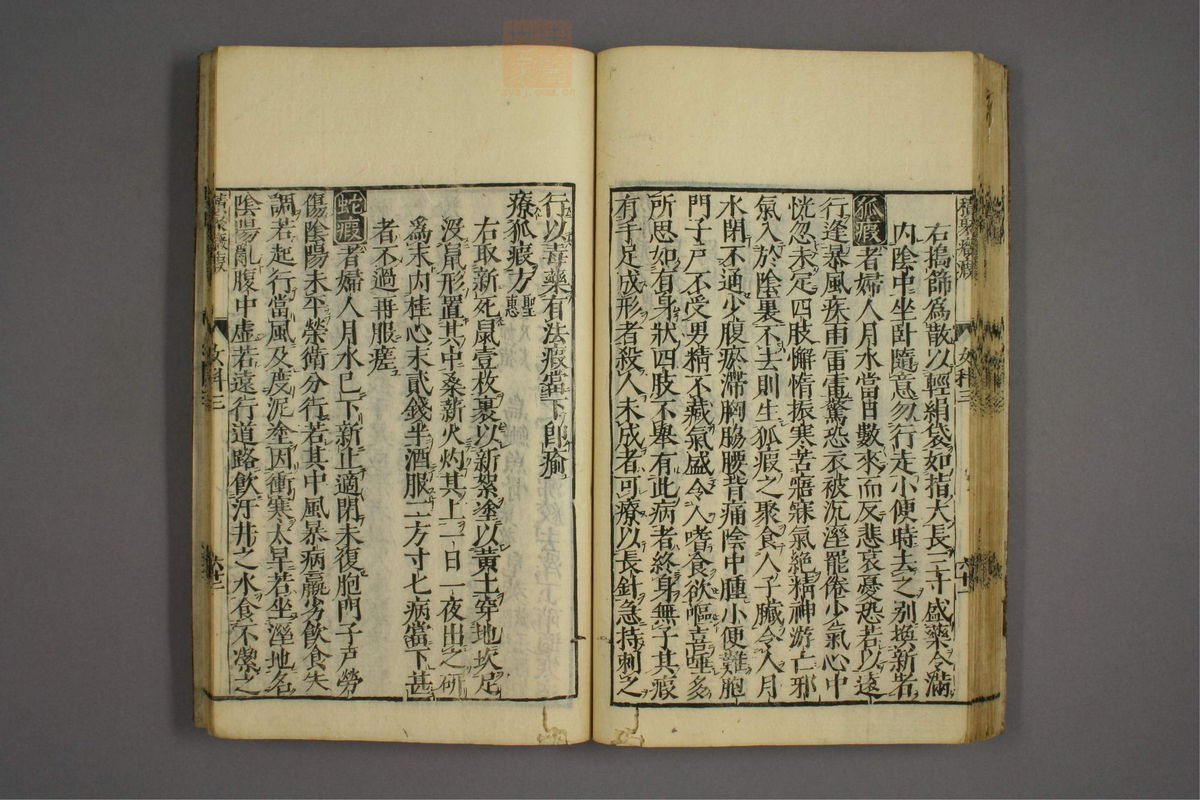 右搗篩爲散以輕絹袋如指大長二寸盛藥令滿
内陰中坐卧隨意勿行走小便時去之别換新者
狐瘕者婦人月水當日數來而反悲哀憂恐若以遠
行逢暴風疾雨雷電驚恐衣被沉溼罷倦少氣心中
恍忽未定四肢懈惰振寒苦寤寐氣絶精神游亡邪
氣入於陰裏不去則生狐瘕之聚食人子臟令人月
水閉不通少腹瘀滯胸脇腰背痛陰中腫小便難胞
門子戸不受男精不藏氣盛令人嗜食欲嘔喜唾多
所思如有身狀四肢不舉有此病者終身無子其瘕
有手足成形者殺人未成者可療以長針急持刺之
女科三
行以毒藥有法瘕當下卽瘉
療狐瘕方 聖惠
右取新死鼠壹枚裹以新絮塗以黄土穿地坎足
没鼠形置其中桑薪火灼其上一日一夜出之研
爲末内桂心末貳錢半酒服二方寸匕病當下甚
者不過再服瘥
蛇瘕者婦人月水已下新止適閉未復胞門子戸勞
傷陰陽未平榮衛分行若其中風暴病羸劣飲食失
調若起行當風及度泥塗因衝寒太早若坐溼地名
陰陽亂腹中虚若遠行道路飲汙井之水食不潔之
女科三